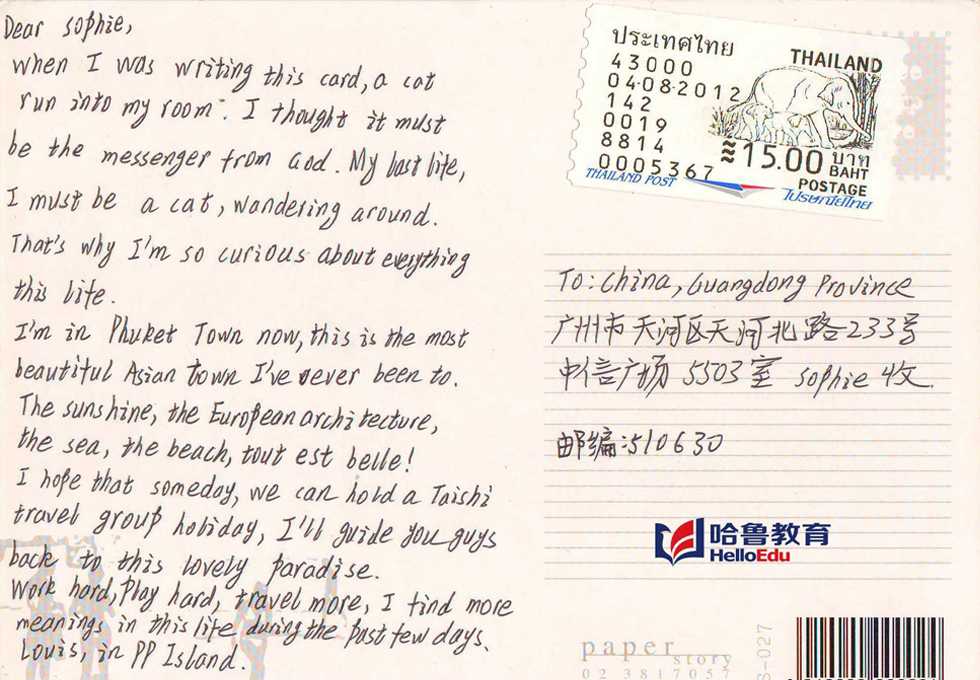 Dear Sophie,
when I was writing this card, a cat
run into my room. I thought it must
be the messenger from God. My last life,
I must be a cat, wandering around.
That's why I'm so curious about everything
this life.
I'm in Phuket Town now, this is the most
beautiful Asian town I've ever been to.
The sunshine, the European architecture,
the sea, the beach, tout est belle!
I hope that someday, we can hold a Taishi
travel group holiday, I'll guide you guys
back to this lovely paradise.
Work hard, Play hard, travel more, I find more
meanings in this life during the past few days.
Louis, in PP Island.
ประเทศไทย
THAILAND
43000
04-08-2012
142
0019
8814
0005367
≈15.00 บาท
BAHT
POSTAGE
THAILAND POST
ไปรษณีย์ไทย
To: China, Guangdong Province
广州市天河区天河北路233号
中信广场 5503室 Sophie 收.
邮编:510630
哈鲁教育
HelloEdu
paper
story
02 3817057
S-027